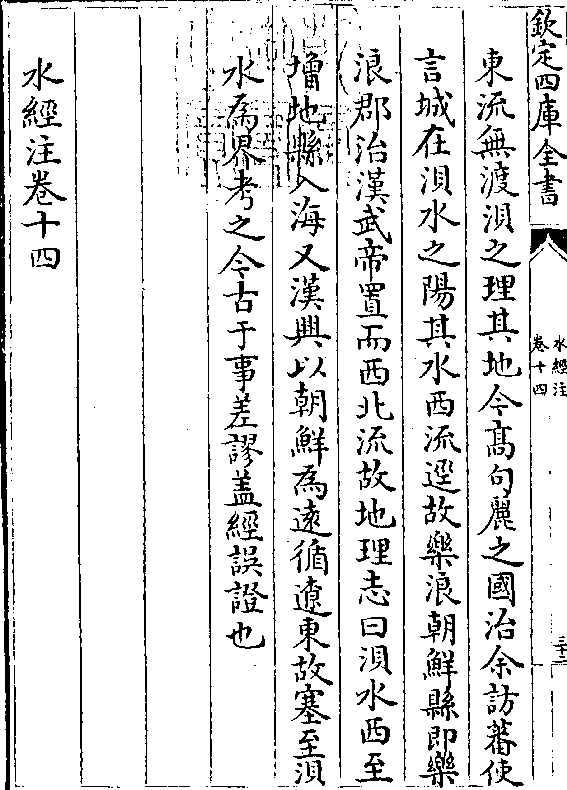 欽定四庫全書
水經注
卷十四
三十二
東流無渡浿之理其地今髙句麗之國治余訪蕃使
言城在浿水之陽其水西流逕故樂浪朝鮮縣即樂
浪郡治漢武帝置而西北流故地理志曰浿水西至
增地縣入海又漢興以朝鮮為遠循遼東故塞至浿
水為界考之今古于事差謬盖經誤證也
水經注卷十四